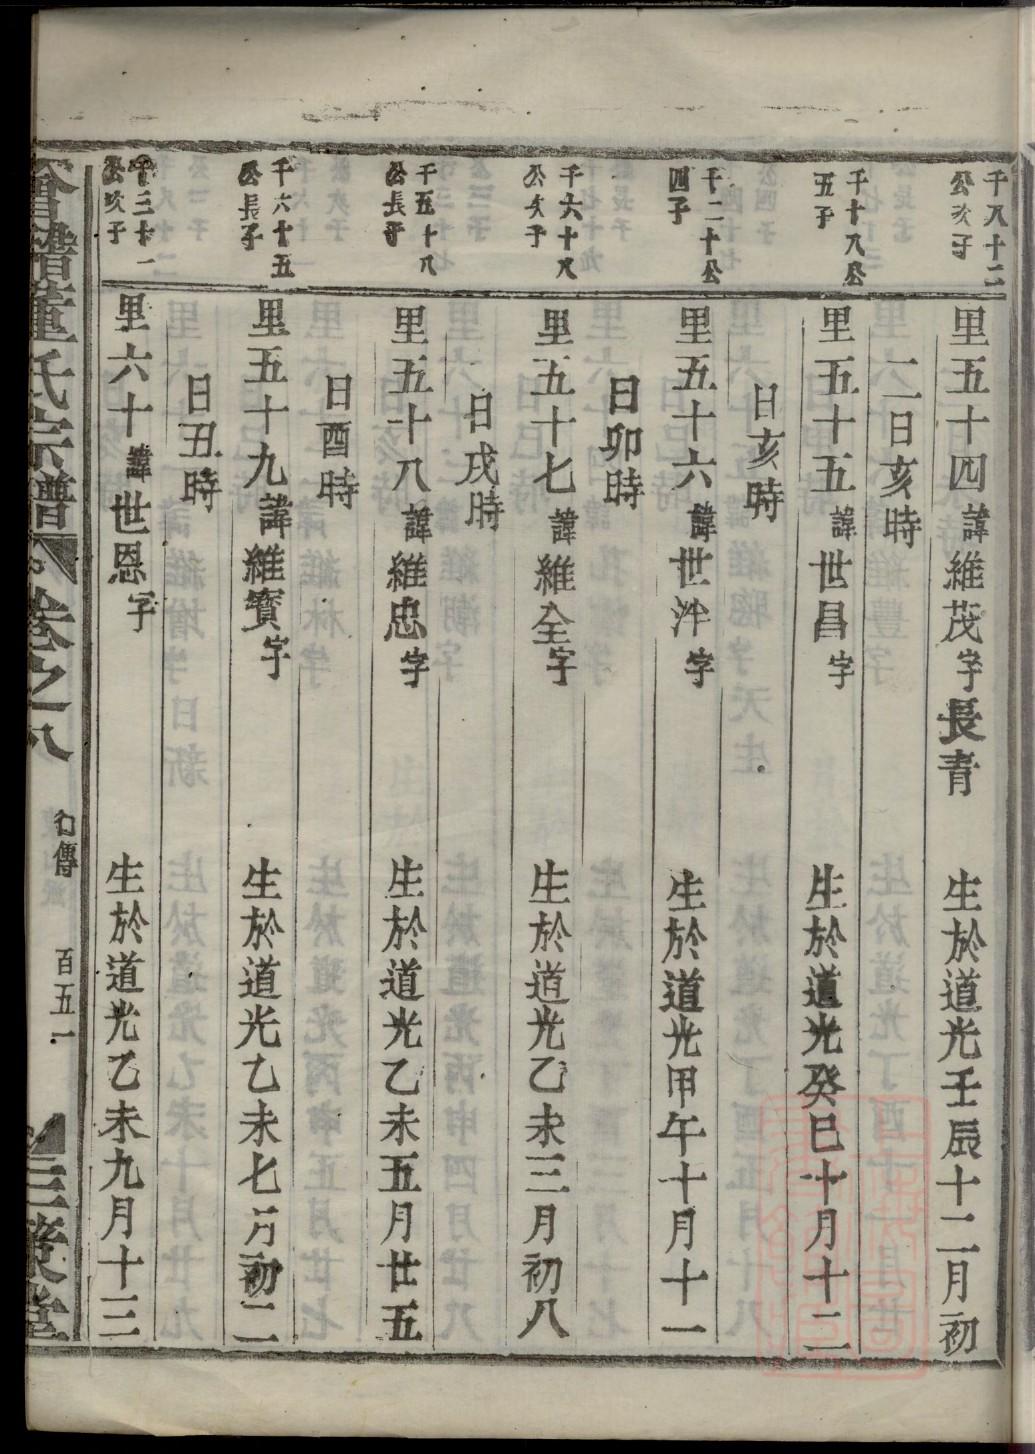 千八十二
公次子
里五十四諱維茂字長青 生於道光壬辰十二月初
二日亥時
千十八公
五子
里五十五諱世昌字 生於道光癸巳十月十二
日亥時
千二十公
四子
里五十六諱世泮字 生於道光甲午十月十一
日卯時
千六十八
公次子
里五十七諱維全字 生於道光乙未三月初八
日戌時
千五十八
公長子
里五十八諱維忠字 生於道光乙未五月廿五
日酉時
千六十五
公長子
里五十九諱維寶字 生於道光乙未七月初二
日丑時
千三十一
公次子
里六十諱世恩字 生於道光乙未九月十三
董氏宗譜 卷之八 行傳 百五一 三策堂